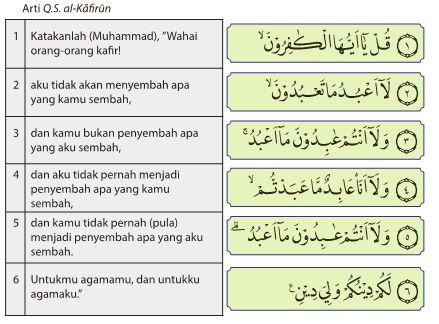 Arti Q.S. al-Kāfirūn
1 Katakanlah (Muhammad), “Wahai
orang-orang kafir!
قُلْ يٰٓاَيُّهَا الْكٰفِرُوْنَۙ ١
2 aku tidak akan menyembah apa
yang kamu sembah,
لَآ اَعْبُدُ مَا تَعْبُدُوْنَۙ ٢
3 dan kamu bukan penyembah apa
yang aku sembah,
وَلَآ اَنْتُمْ عٰبِدُوْنَ مَآ اَعْبُدُۚ ٣
4 dan aku tidak pernah menjadi
penyembah apa yang kamu
sembah,
وَلَآ اَنَا۠ عَابِدٌ مَّا عَبَدْتُّمْۙ ٤
5 dan kamu tidak pernah (pula)
menjadi penyembah apa yang aku
sembah.
وَلَآ اَنْتُمْ عٰبِدُوْنَ مَآ اَعْبُدُۗ ٥
6 Untukmu agamamu, dan untukku
agamaku.”
لَكُمْ دِيْنُكُمْ وَلِيَ دِيْنِ ࣖ ٦